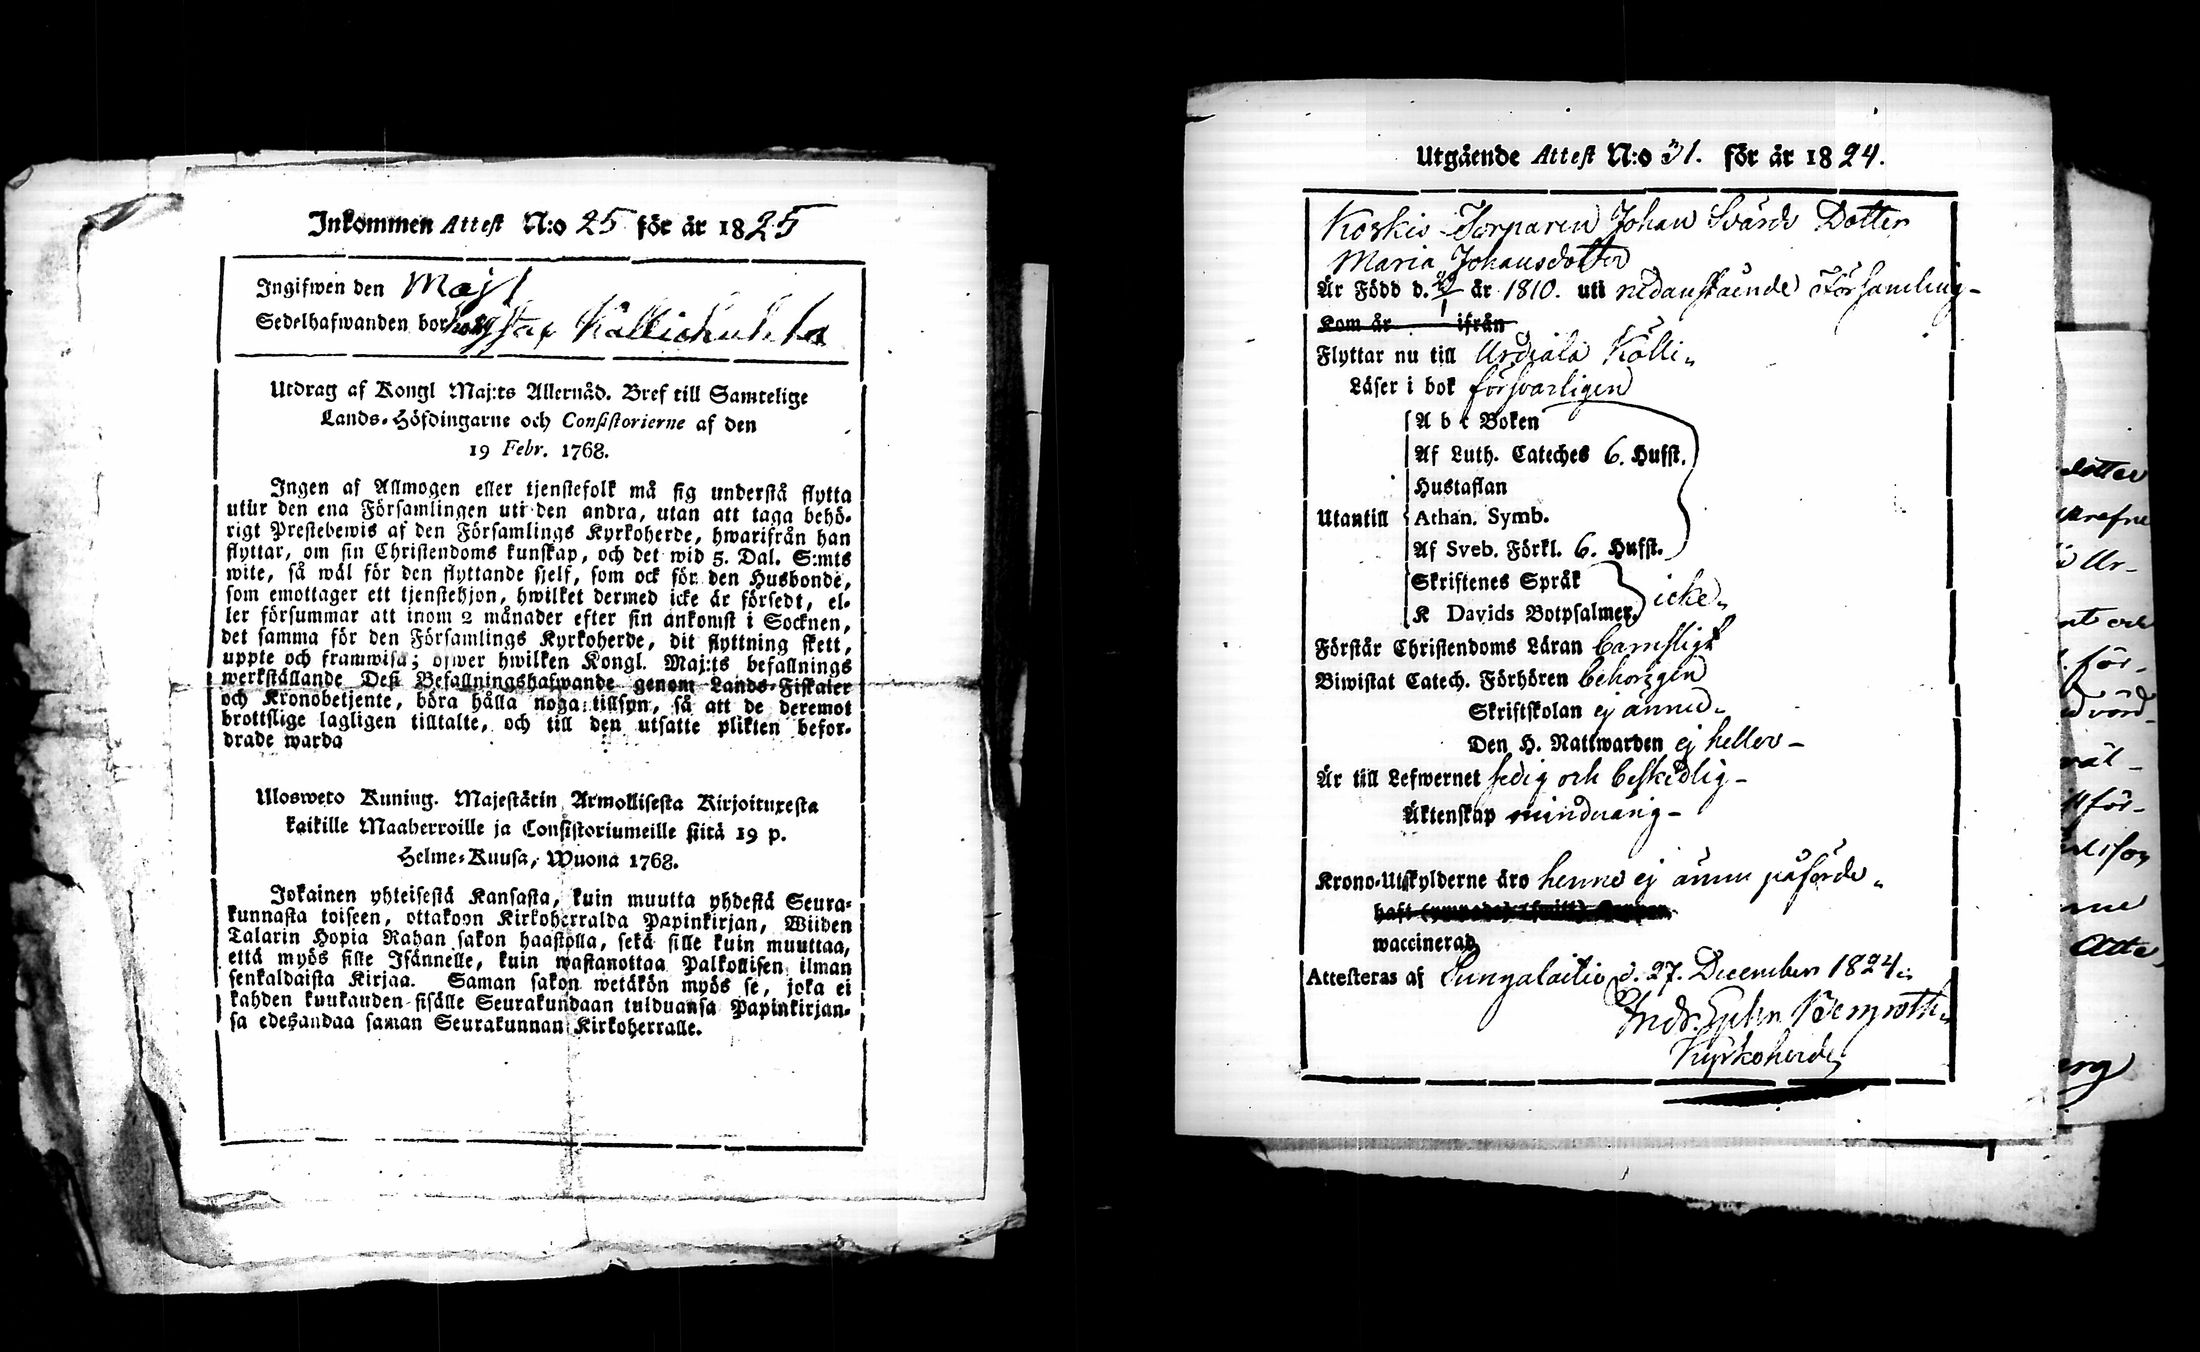 Inkommen Attest N:o 25 för år 1825
Ingifwen den Maj 1
Sedelhafwanden bor
Utdrag af Kongl Maj:ts Allernåd. Bref till Samtelige
Lands-Höfdingarne och Consistorierne af den
19 Febr. 1768.
Ingen af Allmogen eller tjenstefolk må sig understå flytta
utur den ena Församlingen uti den andra, utan att taga behö-
rigt Prestebewis af den Församlings Kyrkoherde, hwarifrån han
flyttar, om sin Christendoms kunskap, och det wid 5. Dal. S:mts
wite, så wäl för den flyttande sjelf, som ock för den Husbonde,
som emottager ett tjenstehjon, hwilket dermed icke är försedt, el-
ler försummar att inom 2 månader efter sin ankomst i Socknen,
det samma för den Församlings Kyrkoherde, dit flyttning skett,
uppte och framwisa; öfwer hwilken Kongl. Maj:ts befallnings
werkställande Deß Befallningshafwande genom Lands-Fiskaler
och Kronobetjente, böra hålla noga tillsyn, så att de deremot
brottslige lagligen tilltalte, och till den utsatte plikten befor-
drade warda
Ulosweto Kuning. Majestätin Armollisesta Kirjoituxesta
kaikille Maaherroille ja Consistoriumeille siitä 19 p.
Helme-Kuusa, Wuona 1768.
Jokainen yhteisestä Kansasta, kuin muutta yhdestä Seura-
kunnasta toiseen, ottakoon Kirkoherralda Papinkirjan, Wiiden
Talarin Hopia Rahan sakon haastolla, sekä sille kuin muuttaa,
että myös sille Isännelle, kuin wastanottaa Palkollisen ilman
senkaldaista Kirjaa. Saman sakon wetäkön myös se, joka ei
kahden kuukauden sisälle Seurakundaan tulduansa Papinkirjan-
sa edeshandaa saman Seurakunnan Kirkoherralle.
Utgående Attest N:o 31. för år 1824.
Koskis Torparen Johan Svärds Dotter
Maria Johansdotter
Är Född d. år 1810. uti nedanstående Församling
Kom år ifrån
Flyttar nu till Urdiala Kölli
Läser i bok försvarligen
A b c Boken
Af Luth. Cateches 6. Hufst.
Hustaflan
Utantill Athan. Symb.
Af Sveb. Förkl. 6. Hufst.
Skriftenes Språk
K Davids Botpsalmer. icke
Förstår Christendoms Läran barnsligt
Biwistat Catech. Förhören behorigen
Skriftskolan ej ännu
Den H. Nattwarden ej heller
Är till Lefwernet sedig och beskedlig
Äktenskap minderårig
Krono-Utskylderne äro henne ej ännu påförde
haft
waccinerad
Attesteras af Pungalaitio d. 27. December 1824
Kyrkoherde
dotter
Ur-
för-
Atte